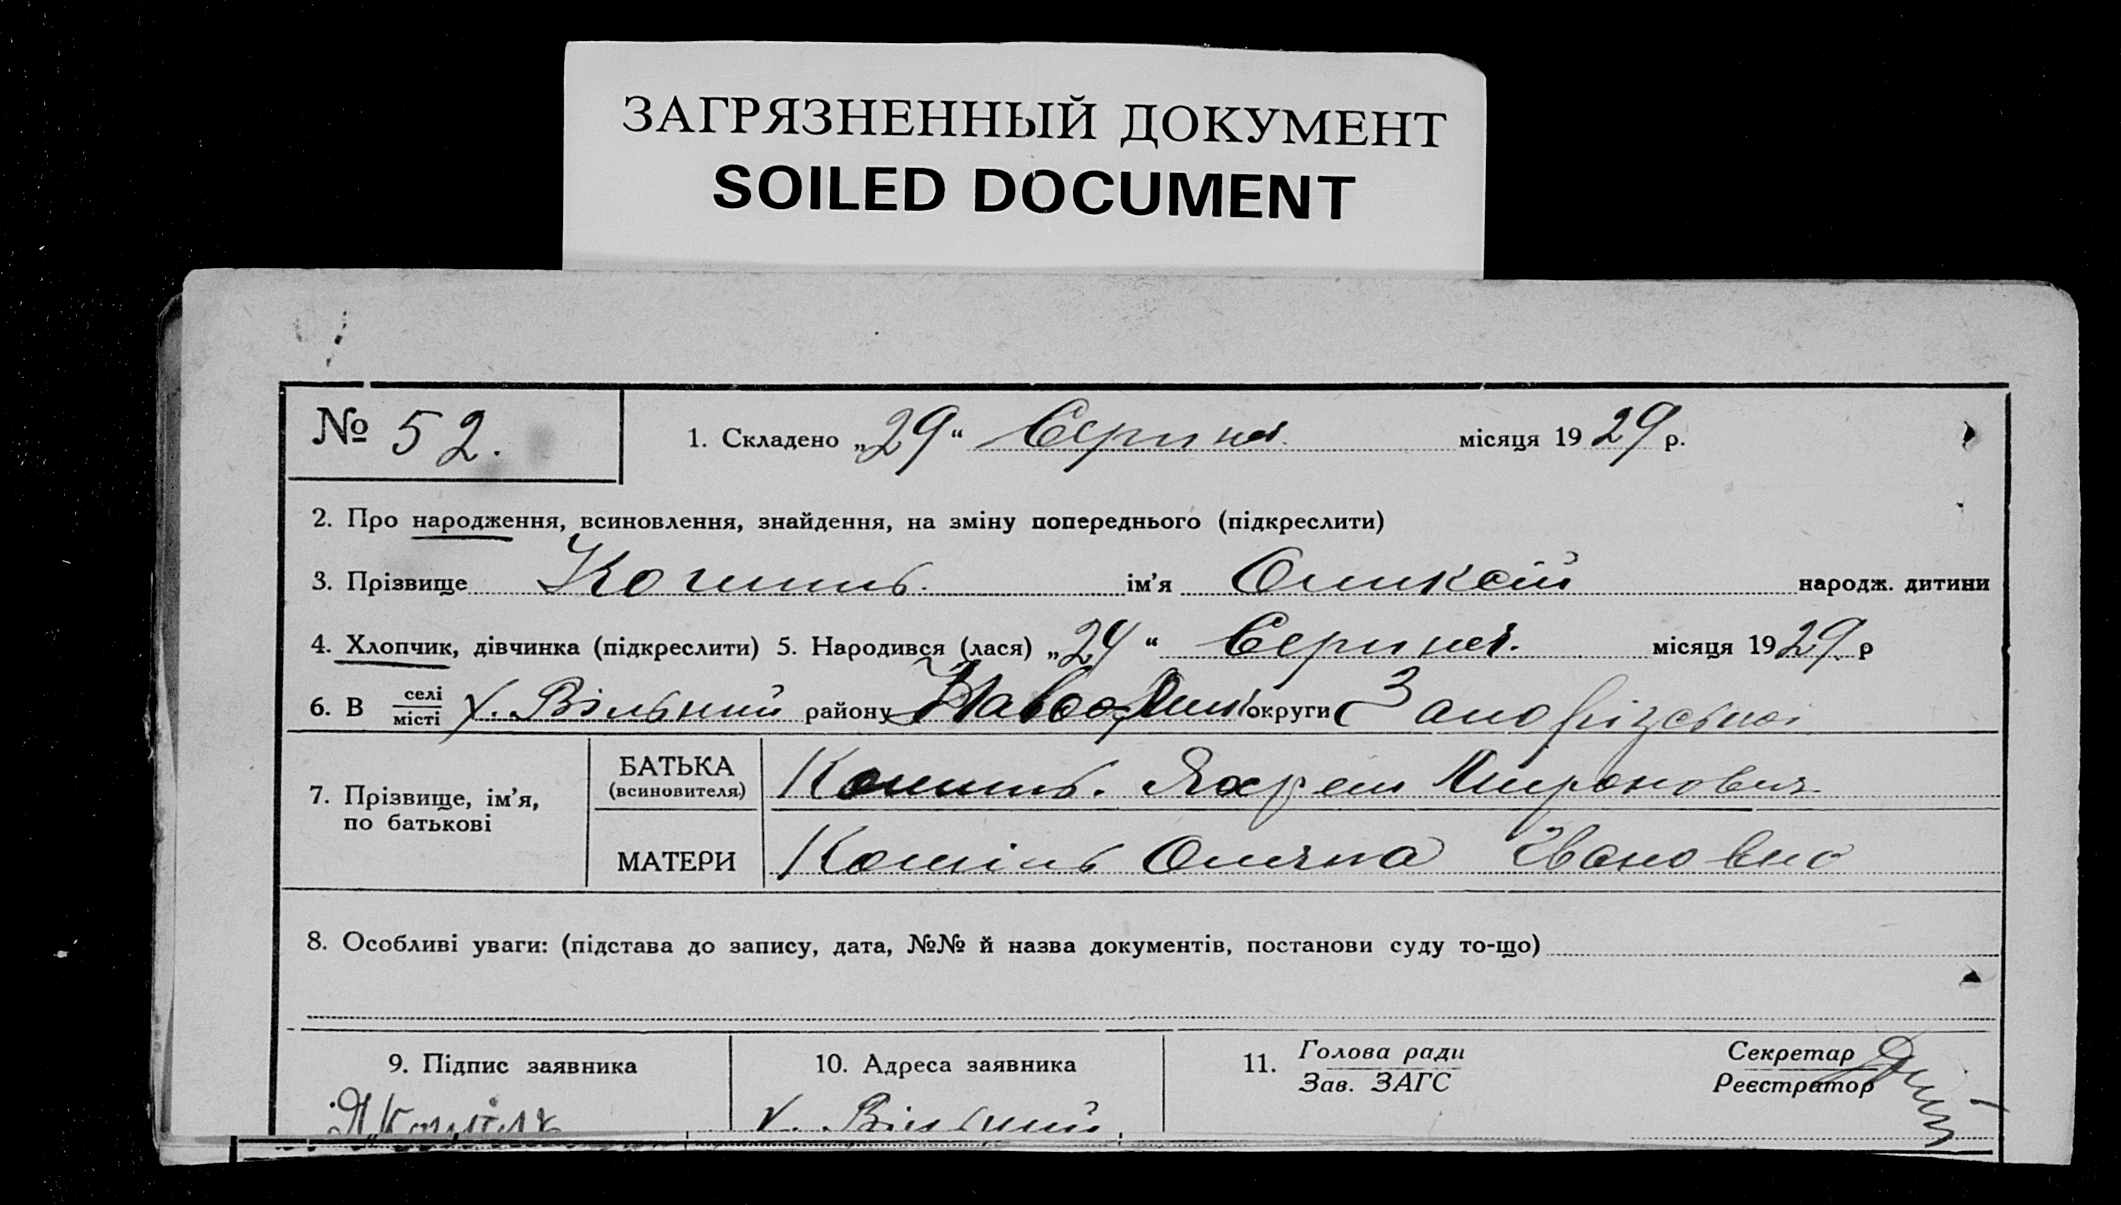 ЗАГРЯЗНЕННЫЙ ДОКУМЕНТ
SOILED DOCUMENT
№ 52. 1. Складено „29“ Серпня. місяця 1929 р.
2. Про народження, всиновлення, знайдення, на зміну попереднього (підкреслити)
3. Прізвище ім'я Оликсій народж. дитини
4. Хлопчик, дівчинка (підкреслити) 5. Народився (лася) „24“ Серпня. місяця 1929 р
6. В селі місті х. Вільний району округи Запорізської
7. Прізвище, ім'я, по батькові
БАТЬКА (всиновителя) Миронович
МАТЕРИ Кошіль Оляна Івановна
8. Особливі уваги: (підстава до запису, дата, №№ й назва документів, постанови суду то-що)
9. Підпис заявника 10. Адреса заявника 11. Голова ради Зав. ЗАГС Секретар Реєстратор
х. Вільний